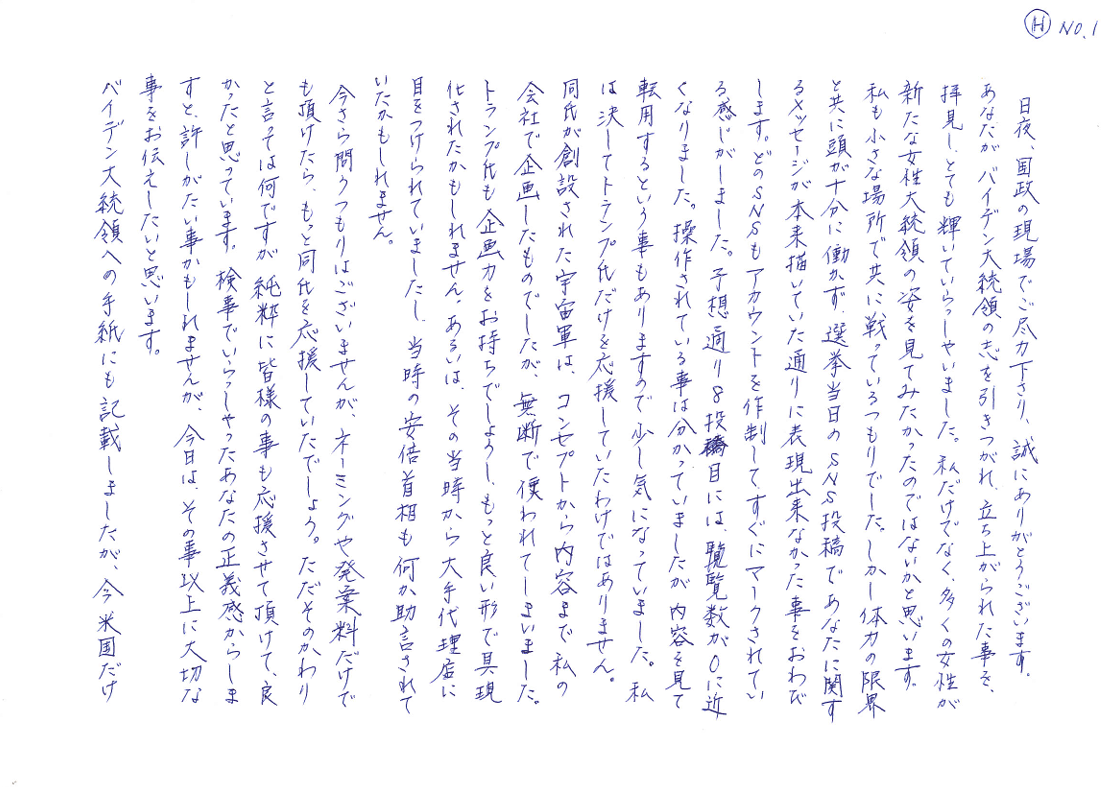 Ⓗ NO.1
日夜、国政の現場でご尽力下さり、誠にありがとうございます。
あなたがバイデン大統領の志を引きつがれ、立ち上がられた事を、
拝見し、とても輝いていらっしゃいました。私だけでなく、多くの女性が
新たな女性大統領の姿を見てみたかったのではないかと思います。
私も小さな場所で共に戦っているつもりでした。しかし体力の限界
と共に頭が十分に働かず、選挙当日のSNS投稿であなたに関す
るメッセージが本来描いていた通りに表現出来なかった事をおわび
します。どのSNSもアカウントを作制して、すぐにマークされてい
る感じがしました。予想通り8投稿目には、閲覧数が0に近
くなりました。操作されている事は分かっていましたが内容を見て
転用するという事もありますので少し気になっていました。私
は決してトランプ氏だけを応援していたわけではありません。
同氏が創設された宇宙軍は、コンセプトから内容まで私の
会社で企画したものでしたが、無断で使われてしまいました。
トランプ氏も企画力をお持ちでしょうし、もっと良い形で具現
化されたかもしれません。あるいは、その当時から大手代理店に
目をつけられていましたし、当時の安倍首相も何か助言されて
いたかもしれません。
今さら問うつもりはございませんが、ネーミングや発案料だけで
も頂けたら、もっと同氏を応援していたでしょう。ただそのかわり
と言っては何ですが純粋に皆様の事も応援させて頂けて、良
かったと思っています。検事でいらっしゃったあなたの正義感からしま
すと、許しがたい事かもしれませんが、今日は、その事以上に大切な
事をお伝えしたいと思います。
バイデン大統領への手紙にも記載しましたが、今米国だけ